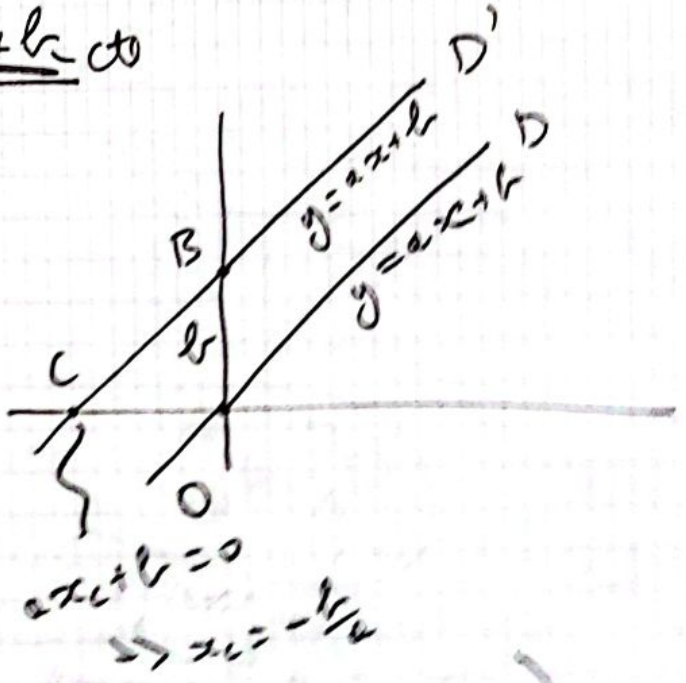 +b=cto
D'
y=ax+b
D
y=ax+b
B
b
C
O
axc+b=0
=> xc=-b/a